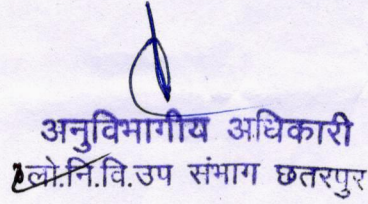 अनुविभागीय अधिकारी
लो.नि.वि.उप संभाग छतरपुर